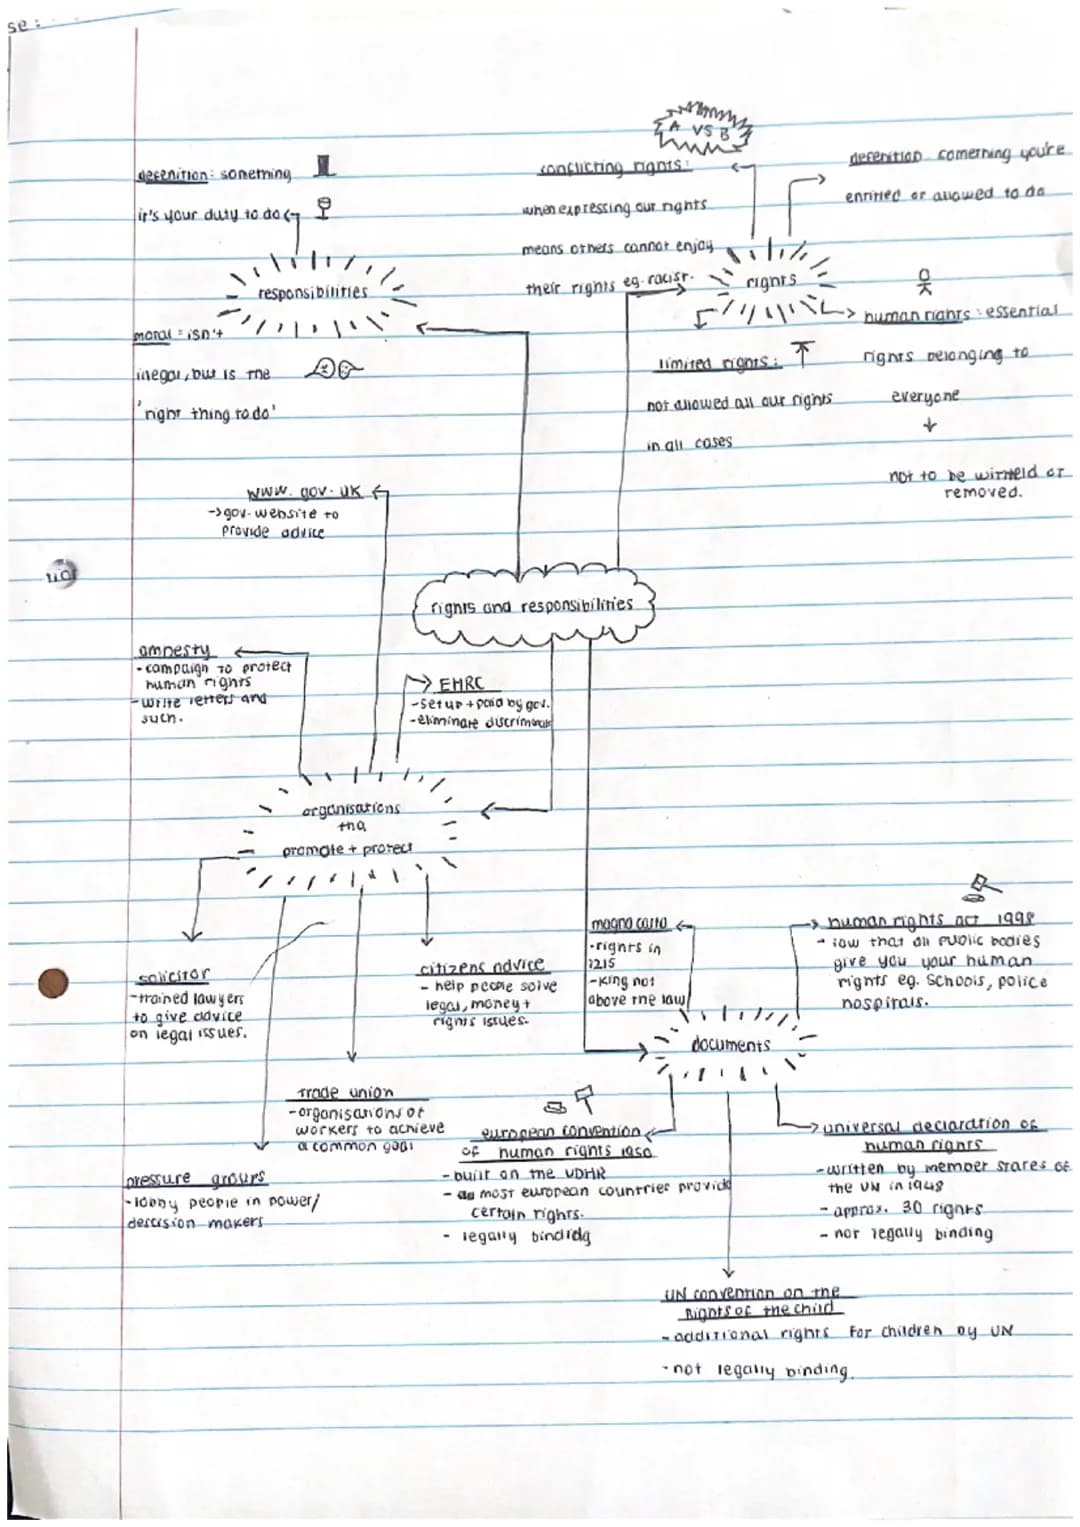 se:
A VS B
defenition: someming
it's your duty to do
responsibilities
moral = isn't
inegal, but is the
'right thing to do'
conflicting rights:
when expressing our rights
means others cannot enjoy
their rights eg. racist.
rights
defenition someming you're
entitled or allowed to do
human rights: essential
rights belonging to
everyone
not to be witheld or
removed.
limited rights:
not allowed all our rights
in all cases
www.gov.uk
→gov. website to
provide advice
rights and responsibilities
amnesty
- campaign to protect
human rights
- write letters and
such.
EHRC
- set up + paid by gov.
- eliminate discriminat
organisations
tha
promote + protect
solicitor
- trained lawyers
to give advice
on legal issues.
citizens advice
- help people solve
legal, money +
rights issues.
Trade union
- organisations of
workers to achieve
a common goal
pressure groups
- lobby people in power/
descision makers
magna carta
- rights in
1215
- King not
above the law
human rights act 1998
- law that all public bodies
give you your human
rights eg. schools, police
hospitals.
documents
european convention
of human rights 1950
- built on the UDHR
- most european countries provide
certain rights.
- legally binding
universal declaration of
human rights
- written by member states of
the UN in 1948
- approx. 30 rights
- not legally binding
UN convention on the
Rights of the child
- additional rights for children by UN
- not legally binding.